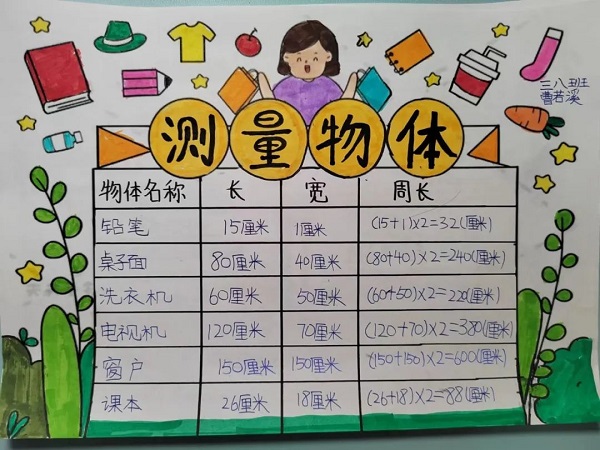 三八班
曹若溪
测量物体
物体名称 长 宽 周长
铅笔 15厘米 1厘米 (15+1)×2=32(厘米)
桌子面 80厘米 40厘米 (80+40)×2=240(厘米)
洗衣机 60厘米 50厘米 (60+50)×2=220(厘米)
电视机 120厘米 70厘米 (120+70)×2=380(厘米)
窗户 150厘米 150厘米 (150+150)×2=600(厘米)
课本 26厘米 18厘米 (26+18)×2=88(厘米)